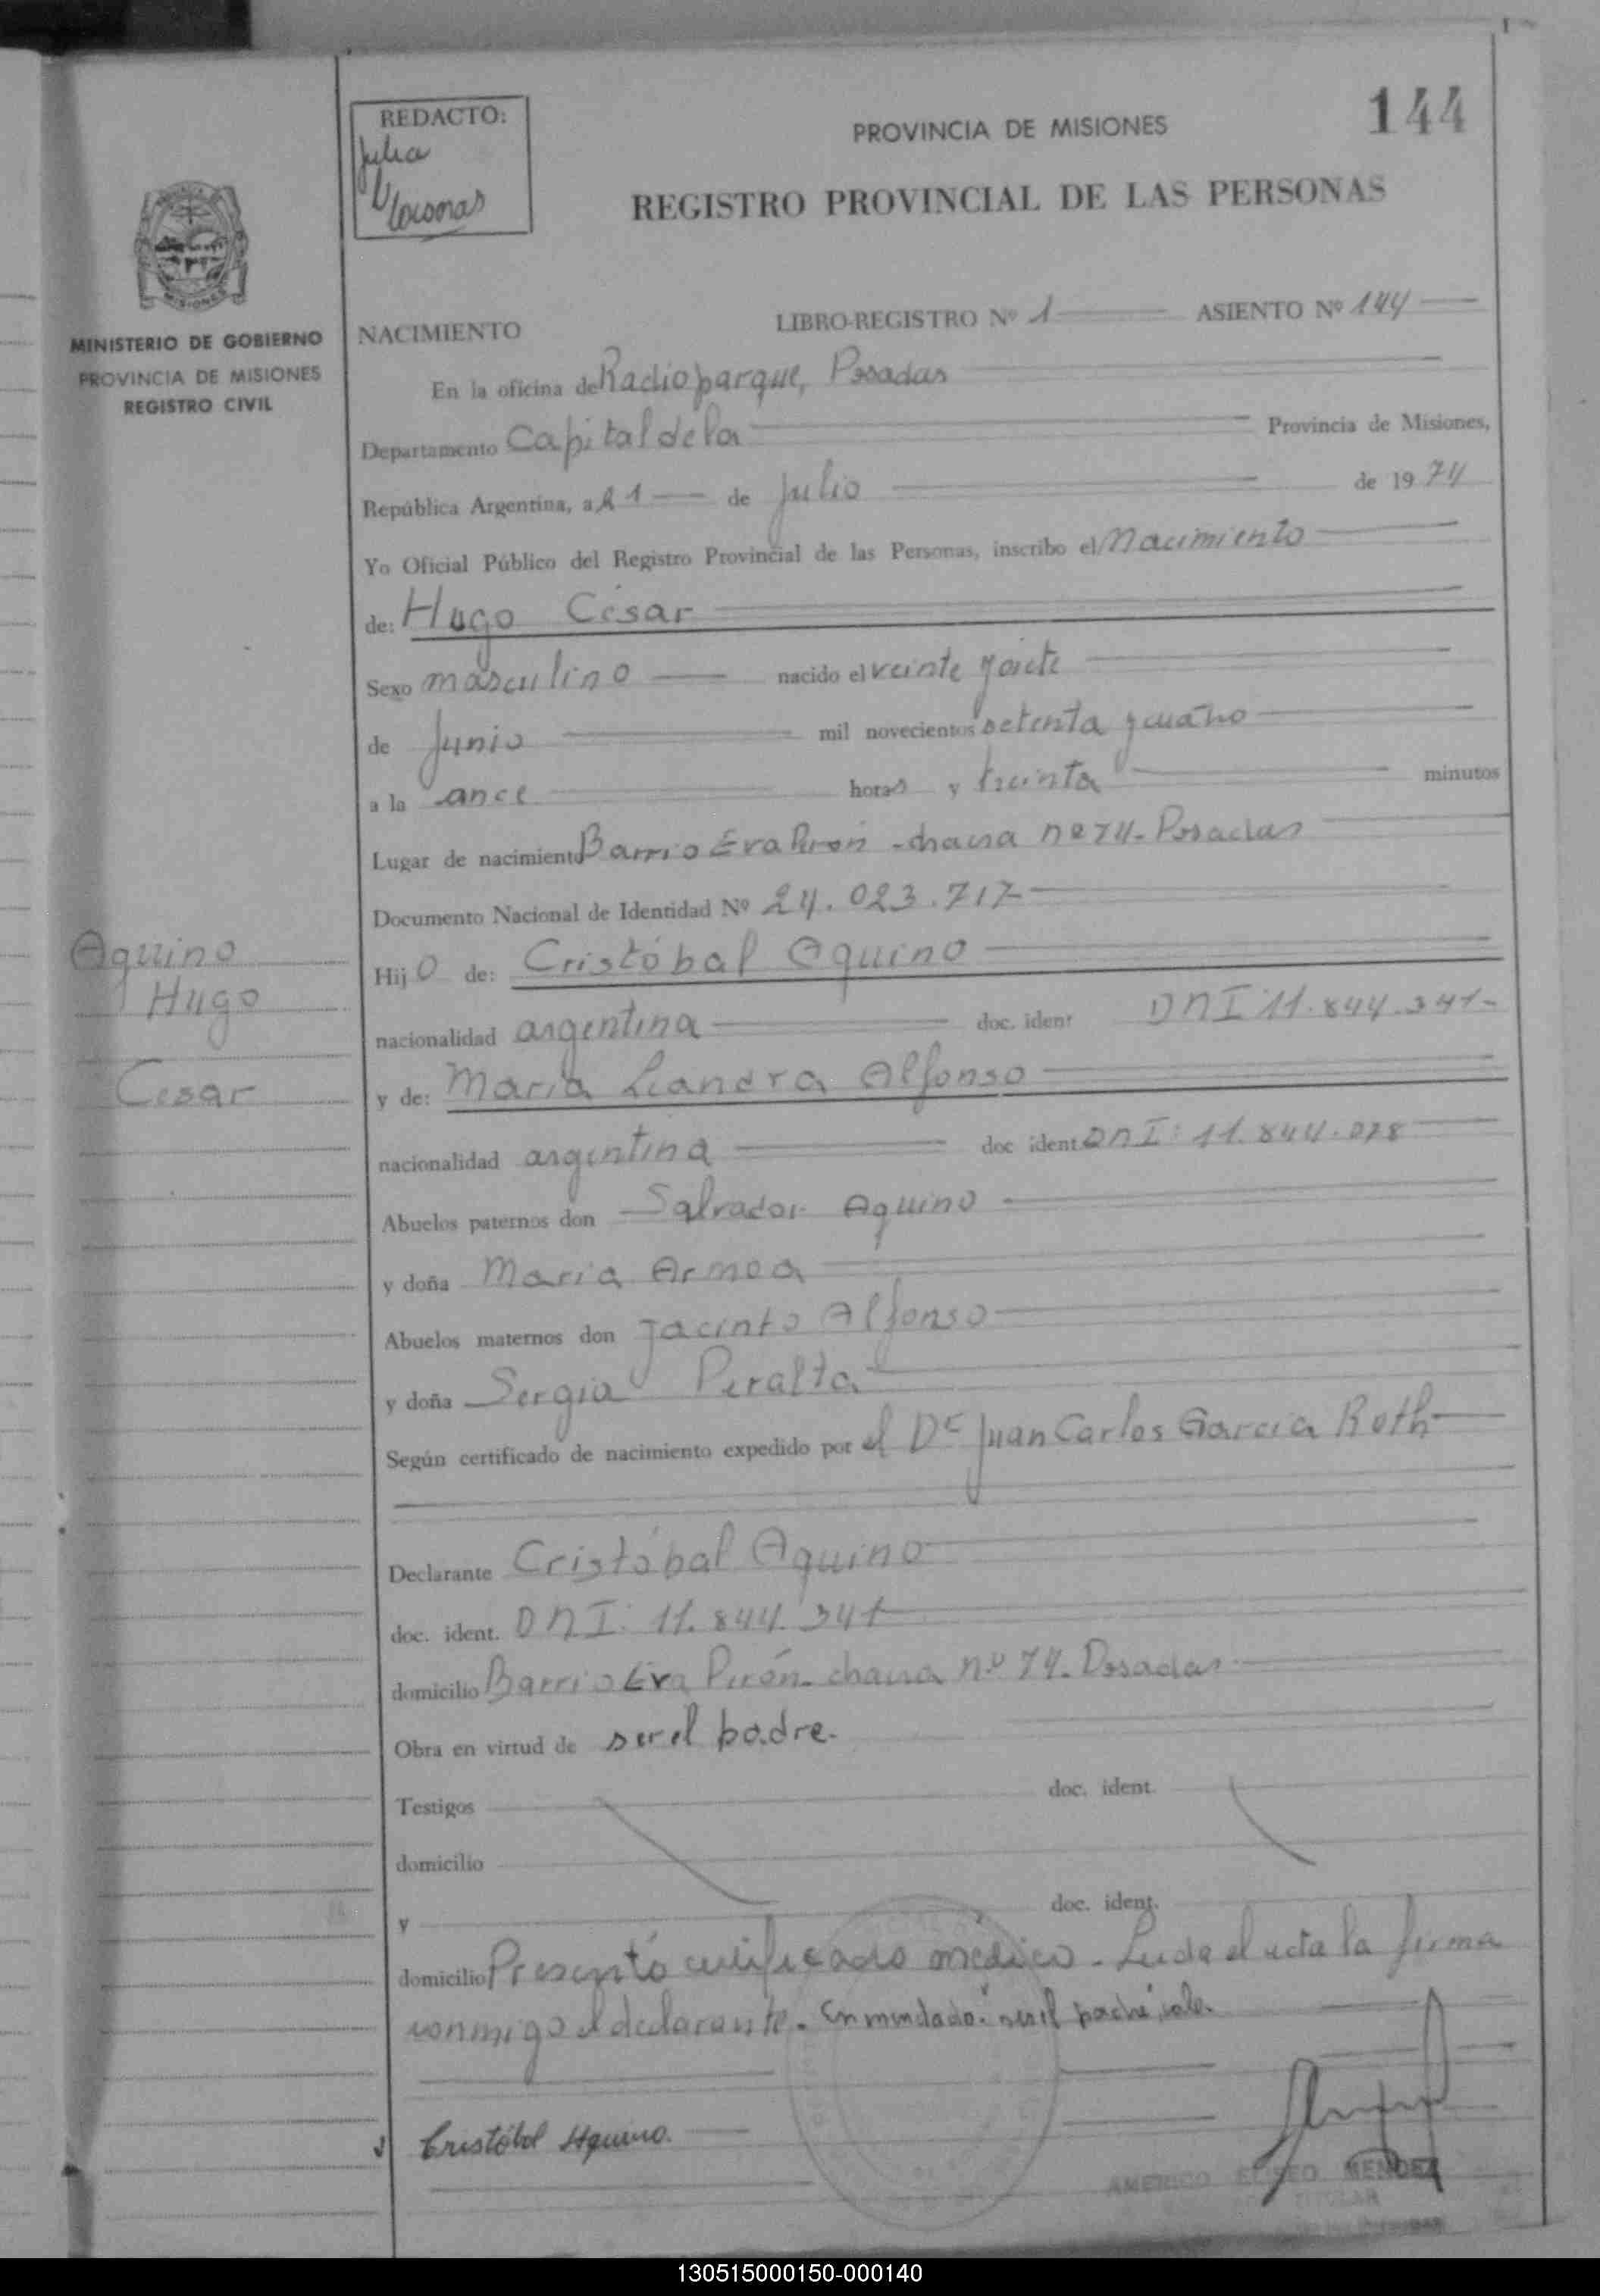 144
REDACTO:
Julia
PROVINCIA DE MISIONES
REGISTRO PROVINCIAL DE LAS PERSONAS
MISIONES
MINISTERIO DE GOBIERNO
PROVINCIA DE MISIONES
REGISTRO CIVIL
NACIMIENTO LIBRO-REGISTRO Nº 1 ASIENTO Nº 144
En la oficina de Radioparque, Posadas
Departamento Capital de la Provincia de Misiones,
República Argentina, a 21 de Julio de 1974
Yo Oficial Público del Registro Provincial de las Personas, inscribo el Nacimiento
de: Hugo César
Sexo masculino nacido el veinte y siete
de Junio mil novecientos setenta y cuatro
a la once horas y treinta minutos
Lugar de nacimiento Barrio Eva Perón - chacra nº 74 - Posadas
Documento Nacional de Identidad Nº 24.023.717
Aquino
Hugo
Cesar
Hijo de: Cristóbal Aquino
nacionalidad argentina doc. ident DNI 11.844.341-
y de: Maria Leandra Alfonso
nacionalidad argentina doc ident DNI: 11.844.078
Abuelos paternos don Salvador Aquino
y doña Maria Armoa
Abuelos maternos don Jacinto Alfonso
y doña Sergia Peralta
Según certificado de nacimiento expedido por el Dr Juan Carlos Garcia Roth
Declarante Cristóbal Aquino
doc. ident. DNI: 11.844.341
domicilio Barrio Eva Perón - chacra nº 74 - Posadas
Obra en virtud de ser el padre.
Testigos doc. ident.
domicilio
y doc. ident.
domicilio Presentó certificado médico - Leida el acta la firma
conmigo el declarante. Enmendado: "ser el padre" vale.
Cristóbal Aquino.
AMERICO ELISEO MENDEZ
TITULAR
130515000150-000140